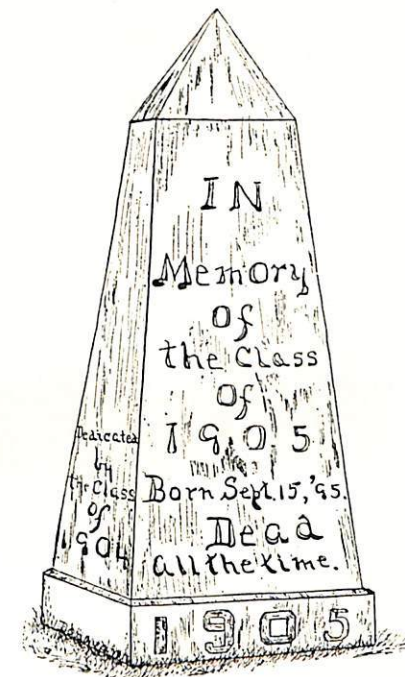 IN
Memory
Of
the Class
Of
1905
Born Sept. 15, '95.
Dead
all the time.
Dedicated
by
the Class
of
1904
1905